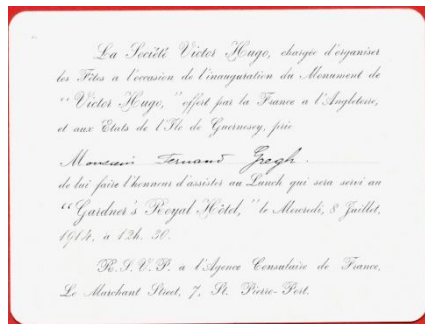 La Société Victor Hugo, chargée d'organiser
les Fêtes a l'occasion de l'inauguration du Monument de
"Victor Hugo," offert par la France a l'Angleterre,
et aux Etats de l'Ile de Guernesey, prie
Monsieur Fernand Gregh.
de lui faire l'honneur d'assister au Lunch qui sera servi au
"Gardner's Royal Hôtel," le Mercredi, 8 Juillet,
1914, à 12h. 30.
R.S.V.P. à l'Agence Consulaire de France,
Le Marchant Street, 7, St. Pierre-Port.